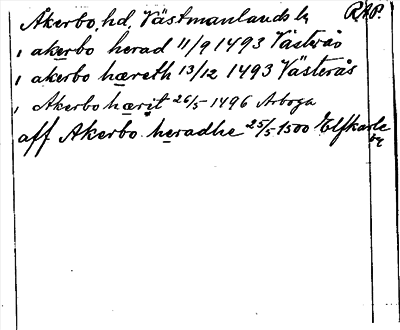 Åkerbo, hd, Västmanlands l. RAP.
i akerbo herad 11/9 1493 Västerås
i akerbo hæreth 13/12 1493 Västerås
i Akerbo hærit 26/5 1496 Arboga
aff Akerbo heradhe 25/5 1500 Elfkarle
by